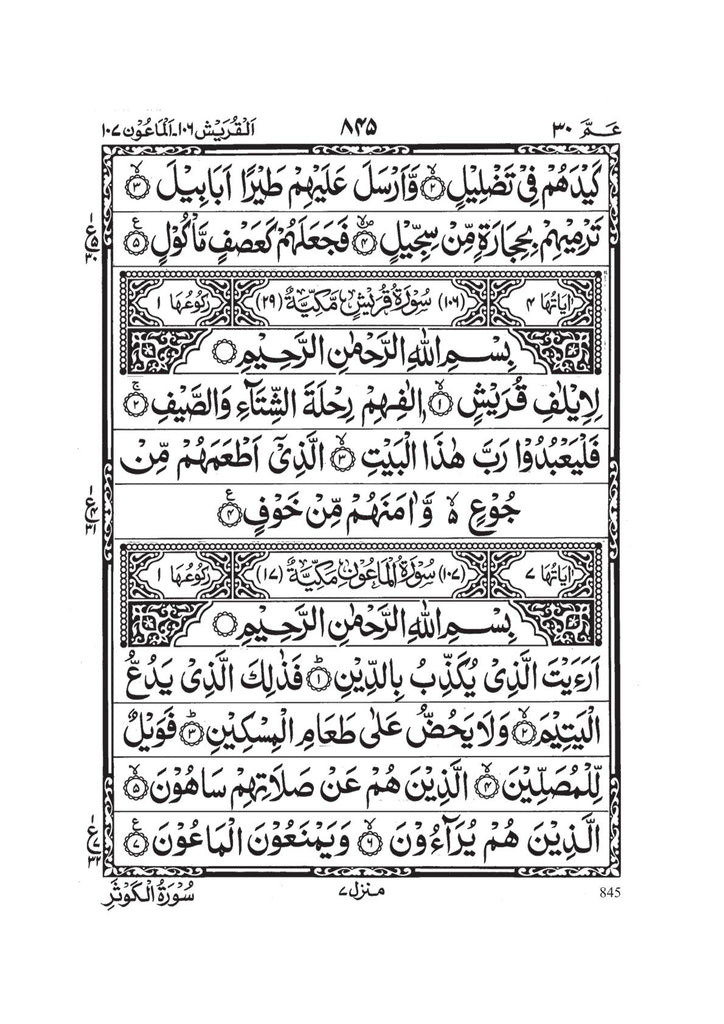 عَمَّ ٣٠ ٨۴۵ اَلْقُرَيْش ١٠٦-اَلْمَاعُوْن ١٠٧
كَيْدَهُمْ فِىْ تَضْلِيْلٍ ۙ﴿٢﴾ وَّاَرْسَلَ عَلَيْهِمْ طَيْرًا اَبَابِيْلَ ۙ﴿٣﴾
تَرْمِيْهِمْ بِحِجَارَةٍ مِّنْ سِجِّيْلٍ ۪ۙ﴿۴﴾ فَجَعَلَهُمْ كَعَصْفٍ مَّاْكُوْلٍ ﴿۵﴾ ع
ع ۵ ٣٠
اٰيَاتُهَا ۴ (١٠٦) سُوْرَةُ قُرَيْشٍ مَّكِّيَّةٌ (٢٩) رُكُوْعُهَا ١
بِسْمِ اللّٰهِ الرَّحْمٰنِ الرَّحِيْمِ ○
لِاِيْلٰفِ قُرَيْشٍ ۙ﴿١﴾ اٖلٰفِهِمْ رِحْلَةَ الشِّتَآءِ وَالصَّيْفِ ۚ﴿٢﴾
فَلْيَعْبُدُوْا رَبَّ هٰذَا الْبَيْتِ ۙ﴿٣﴾ الَّذِىْٓ اَطْعَمَهُمْ مِّنْ
جُوْعٍ ۵ وَّاٰمَنَهُمْ مِّنْ خَوْفٍ ﴿۴﴾ ع
ع ۴ ٣١
اٰيَاتُهَا ٧ (١٠٧) سُوْرَةُ الْمَاعُوْنِ مَكِّيَّةٌ (١٧) رُكُوْعُهَا ١
بِسْمِ اللّٰهِ الرَّحْمٰنِ الرَّحِيْمِ ○
اَرَءَيْتَ الَّذِىْ يُكَذِّبُ بِالدِّيْنِ ؕ﴿١﴾ فَذٰلِكَ الَّذِىْ يَدُعُّ
الْيَتِيْمَ ۙ﴿٢﴾ وَلَا يَحُضُّ عَلٰى طَعَامِ الْمِسْكِيْنِ ؕ﴿٣﴾ فَوَيْلٌ
لِّلْمُصَلِّيْنَ ۙ﴿۴﴾ الَّذِيْنَ هُمْ عَنْ صَلَاتِهِمْ سَاهُوْنَ ۙ﴿۵﴾
الَّذِيْنَ هُمْ يُرَآءُوْنَ ۙ﴿٦﴾ وَيَمْنَعُوْنَ الْمَاعُوْنَ ﴿٧﴾ ع
ع ٧ ٣٢
845 منزل ٧ سُوْرَةُ الْكَوْثَرِ